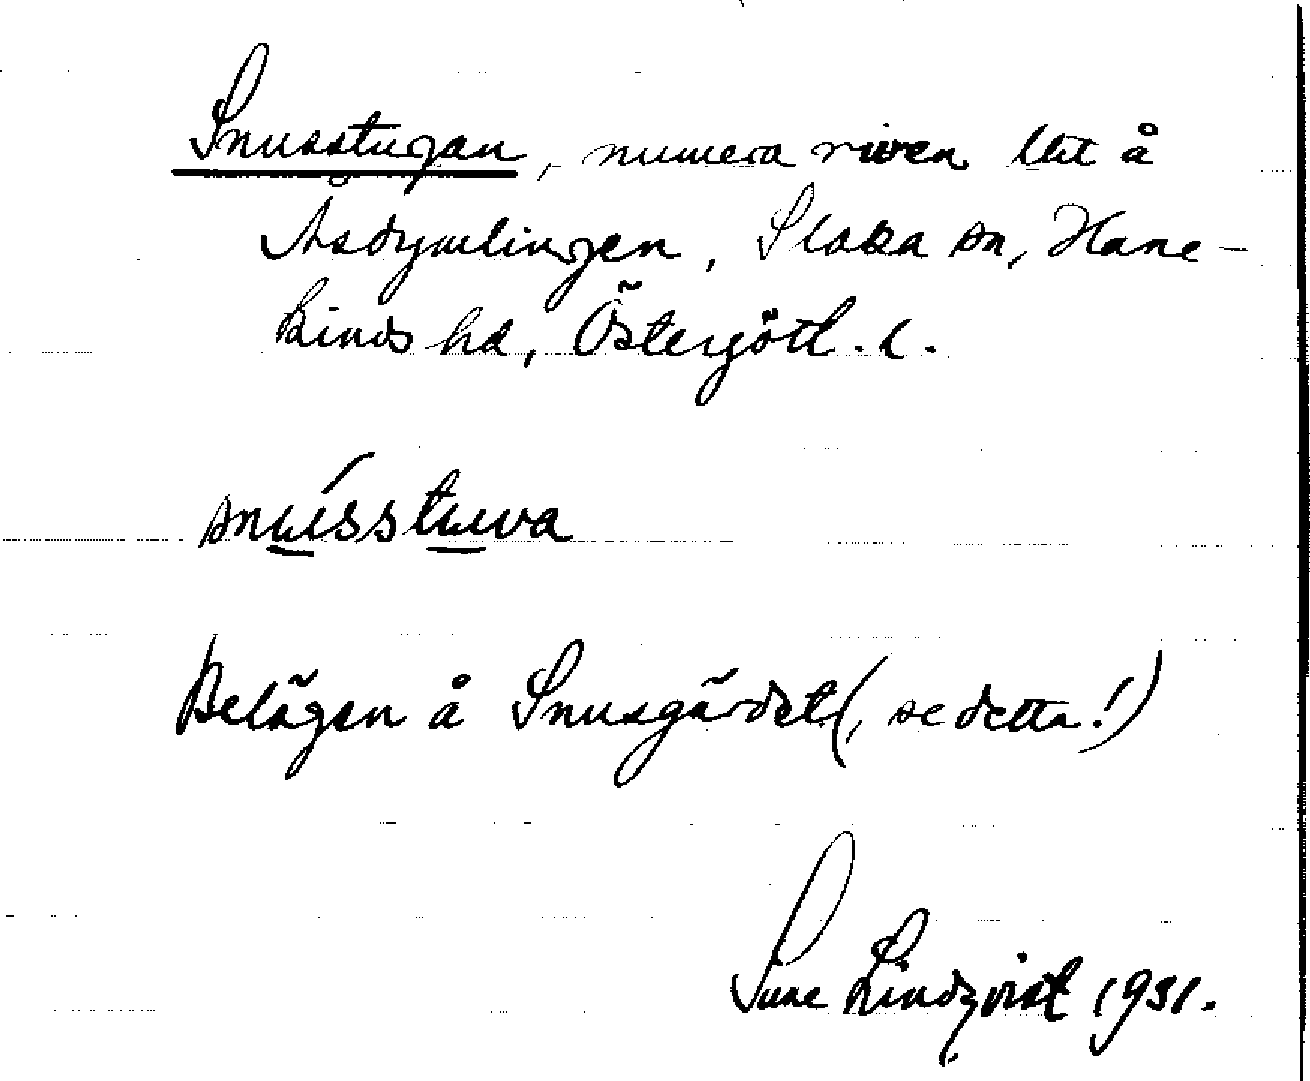 Snusstugan, numera riven lht å
Åsdymlingen, Slaka sn, Hane-
kinds hd, Östergötl. l.
snússtuva
Belägen å Snusgärdet (, se detta!)
Sune Lindqvist 1931.